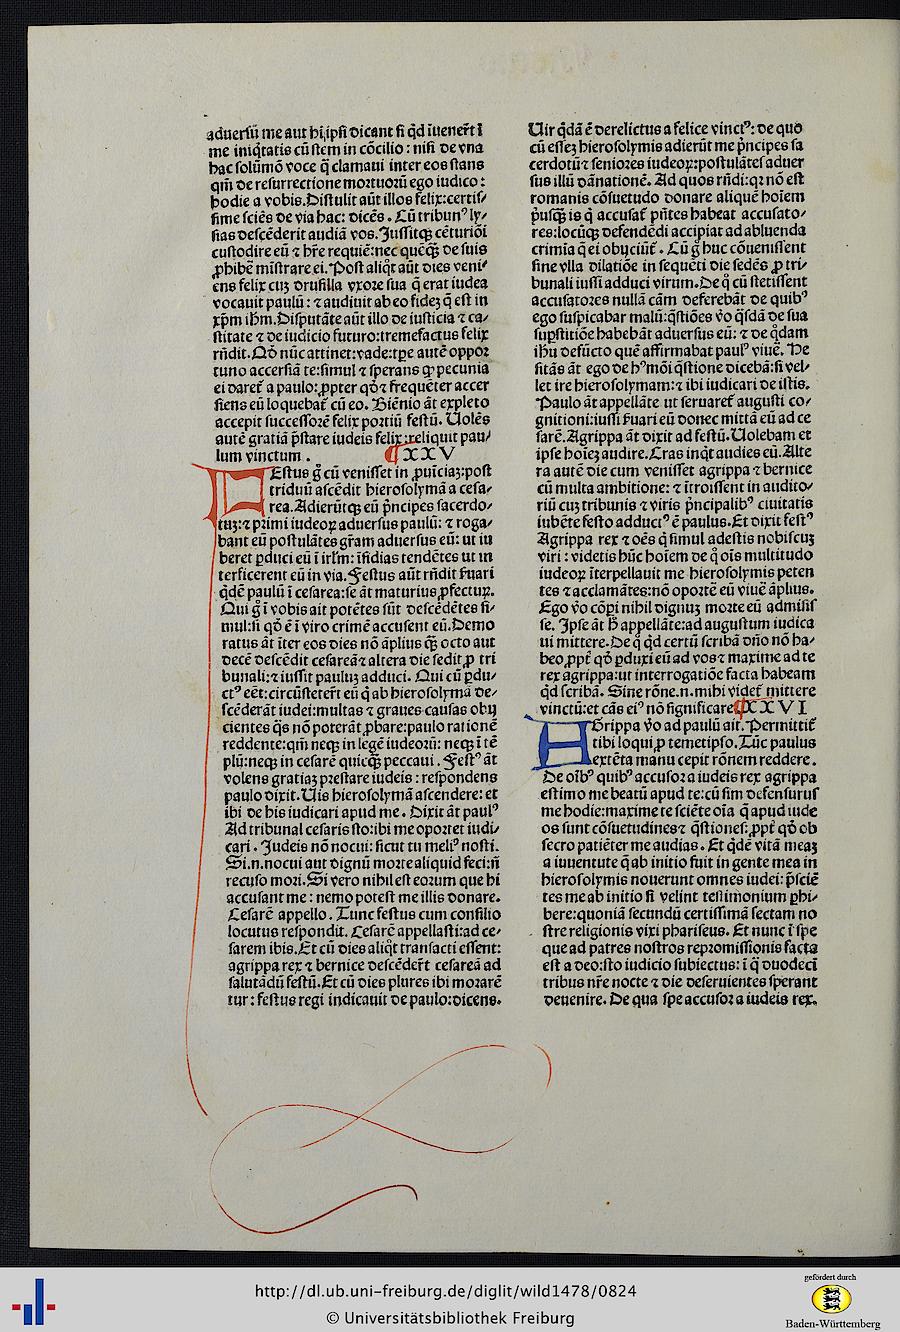 aduersũ me aut hi ipsi dicant si q̃d ĩuener̃t ĩ
me iniq̃tatis cũ stem in cõcilio : nisi de vna
hac solũmõ voce q̃ clamaui inter eos stans
qm̃ de resurrectione mortuorũ ego iudico :
hodie a vobis. Distulit aũt illos felix: certis⸗
sime sciẽs de via hac: dicẽs . Cũ tribunꝰ ly⸗
sias descẽderit audiã vos. Jussitqꝫ cẽturiõi
custodire eũ ⁊ hr̃e requiẽ: nec quẽqꝫ̃ de suis
ꝓhibẽ mĩstrare ei. Post aliq̃t aũt dies veni⸗
ens felix cuꝫ drusilla vxore sua q̃ erat iudea
vocauit paulũ : ⁊ audiuit ab eo fideꝫ q̃ est in
xp̃m ih̃m. Disputãte aũt illo de iusticia ⁊ ca⸗
stitate ⁊ de iudicio futuro: tremefactus felix
rñdit. Qõ nũc attinet: vade: tp̃e autẽ oppor
tuno accersiã te: simul ⁊ sperans qꝛ pecunia
ei daret̃ a paulo: ꝓpter qõ ⁊ frequẽter accer
siens eũ loquebat̃ cũ eo. Biẽnio ãt expleto
accepit successorẽ felix portiũ festũ. Uolẽs
autẽ gratiã p̃stare iudeis felix: reliquit pau⸗
lum vinctum . XXV
FEstus g̃ cũ venisset in ꝓuĩciaꝫ: post
triduũ ascẽdit hierosolymã a cesa⸗
rea. Adierũtqꝫ eũ p̃ncipes sacerdo⸗
tuꝫ: ⁊ primi iudeoꝝ aduersus paulũ: ⁊ roga⸗
bant eũ postulãtes gr̃am aduersus eũ: ut iu
beret ꝑduci eũ ĩ irl̃m: ĩsidias tendẽtes ut in
terficerent eũ in via. Festus aũt rñdit ẜuari
q̃dẽ paulũ ĩ cesarea: se ãt maturius ꝓfecturꝫ.
Qui g̃ ĩ vobis ait potẽtes sũt descẽdẽtes si⸗
mul: si qõ ẽ ĩ viro crimẽ accusent eũ. Demo
ratus ãt ĩter eos dies nõ ãplius qꝫ̃ octo aut
decẽ descẽdit cesareã ⁊ altera die sedit ꝓ tri
bunali: ⁊ iussit pauluꝫ adduci. Qui cũ ꝑdu⸗
ctꝰ eẽt: circũsteter̃t eũ q̃ ab hierosolyma de⸗
scẽderãt iudei: multas ⁊ graues causas obij
cientes q̃s nõ poterãt ꝓbare: paulo rationẽ
reddente: qm̃ neqꝫ in legẽ iudeorũ: neqꝫ ĩ tẽ
plũ: neqꝫ in cesarẽ quicqꝫ̃ peccaui . Festꝰ ãt
volens gratiaꝫ prestare iudeis : respondens
paulo dixit. Uis hierosolymã ascendere: et
ibi de his iudicari apud me . Dixit ãt paulꝰ
Ad tribunal cesaris sto: ibi me oportet iudi⸗
cari . Judeis nõ nocui: sicut tu meliꝰ nosti.
Si.n.nocui aut dignũ morte aliquid feci: ñ
recuso mori. Si vero nihil est eorum que hi
accusant me : nemo potest me illis donare.
Cesarẽ appello . Tunc festus cum consilio
locutus respondit. Cesarẽ appellasti: ad ce⸗
sarem ibis. Et cũ dies aliq̃t transacti essent:
agrippa rex ⁊ bernice descẽder̃t cesareã ad
salutãdũ festũ. Et cũ dies plures ibi morarẽ
tur : festus regi indicauit de paulo: dicens.
Uir q̃dã ẽ derelictus a felice vinctꝰ: de quo
cũ esseꝫ hierosolymis adierũt me p̃ncipes sa
cerdotũ ⁊ seniores iudeoꝝ: postulãtes aduer
sus illũ dãnationẽ. Ad quos rñdi: qꝛ nõ est
romanis cõsuetudo donare aliquẽ hoĩem
p̃usqꝫ̃ is q̃ accusat̃ p̃ntes habeat accusato⸗
res: locũqꝫ defendẽdi accipiat ad abluenda
crimĩa q̃ ei obijciũt̃ . Cũ g̃ huc cõuenissent
sine vlla dilatiõe in sequẽti die sedẽs ꝓ tri⸗
bunali iussi adduci virum. De q̃ cũ stetissent
accusatores nullã cãm deferebãt de quibꝰ
ego suspicabar malũ: q̃stiões v̊o q̃sdã de sua
suꝑstitiõe habebãt aduersus eũ: ⁊ de q̃dam
ih̃u defũcto quẽ affirmabat paulꝰ viuẽ. He
sitãs ãt ego de hꝰmõi q̃stione dicebã: si vel⸗
let ire hierosolymam: ⁊ ibi iudicari de istis.
Paulo ãt appellãte ut seruaret̃ augusti co⸗
gnitioni: iussi ẜuari eũ donec mittã eũ ad ce
sarẽ. Agrippa ãt dixit ad festũ. Uolebam et
ipse hoĩeꝫ audire. Cras inq̃t audies eũ. Alte
ra autẽ die cum venisset agrippa ⁊ bernice
cũ multa ambitione: ⁊ ĩtroissent in audito⸗
riũ cuꝫ tribunis ⁊ viris p̃ncipalibꝰ ciuitatis
iubẽte festo adducꝰ ẽ paulus. Et dixit festꝰ
Agrippa rex ⁊ oẽs q̃ simul adestis nobiscuꝫ
viri : videtis hũc hoĩem de q̃ oĩs multitudo
iudeoꝝ ĩterpellauit me hierosolymis peten
tes ⁊ acclamãtes: nõ oportẽ eũ viuẽ ãplius.
Ego v̊o cõꝑi nihil dignuꝫ morte eũ admisis
se. Ipse ãt h̃ appellãte: ad augustum iudica
ui mittere. De q̃ q̃d certũ scribã dño nõ ha⸗
beo ꝓpt̃ qõ ꝑduxi eũ ad vos ⁊ maxime ad te
rex agrippa: ut interrogatiõe facta habeam
q̃d scribã. Sine rõne.n.mihi videt̃ mittere
vinctũ: et cãs eiꝰ nõ significare XXVI
AGrippa v̊o ad paulũ ait. Permittit̃
tibi loqui ꝓ temetipso. Tũc paulus
extẽta manu cepit rõnem reddere.
De oĩbꝰ quibꝰ accusor a iudeis rex agrippa
estimo me beatũ apud te: cũ sim defensurus
me hodie: maxime te sciẽte oĩa q̃ apud iude
os sunt cõsuetudines ⁊ q̃stiones: ꝓpt̃ qõ ob
secro patiẽter me audias . Et q̃dẽ vitã meaꝫ
a iuuentute q̃ ab initio fuit in gente mea in
hierosolymis nouerunt omnes iudei: p̃sciẽ
tes me ab initio si velint testimonium ꝑhi⸗
bere: quoniã secundũ certissimã sectam no
stre religionis vixi phariseus. Et nunc ĩ spe
que ad patres nostros repromissionis facta
est a deo: sto iudicio subiectus: ĩ q̃ duodecĩ
tribus nr̃e nocte ⁊ die deseruientes sperant
deuenire. De qua spe accusor a iudeis rex.
http://dl.ub.uni-freiburg.de/diglit/wild1478/0824
© Universitätsbibliothek Freiburg
gefördert durch
Baden-Württemberg